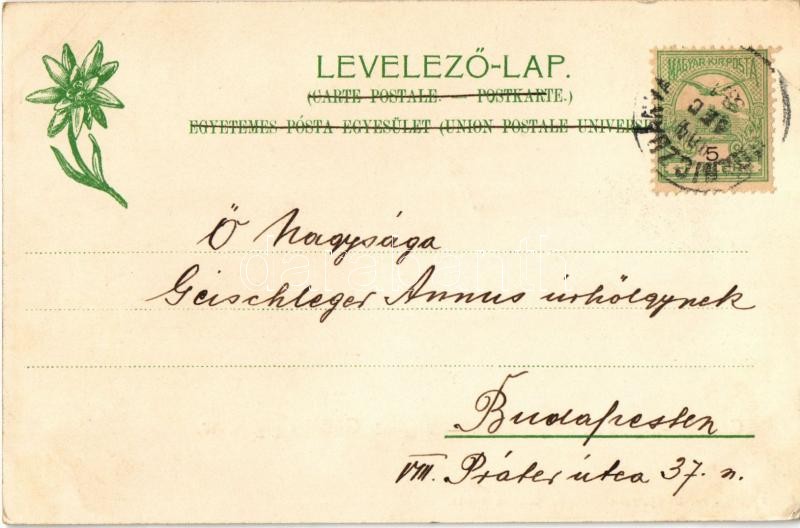 LEVELEZŐ-LAP.
(CARTE POSTALE. — POSTKARTE.)
EGYETEMES PÓSTA EGYESÜLET (UNION POSTALE UNIVERS
MAGYAR KIR. POSTA
5
Ő Nagysága
Geischleger Annus úrhölgynek
Budapesten
VIII. Práter útca 37. n.